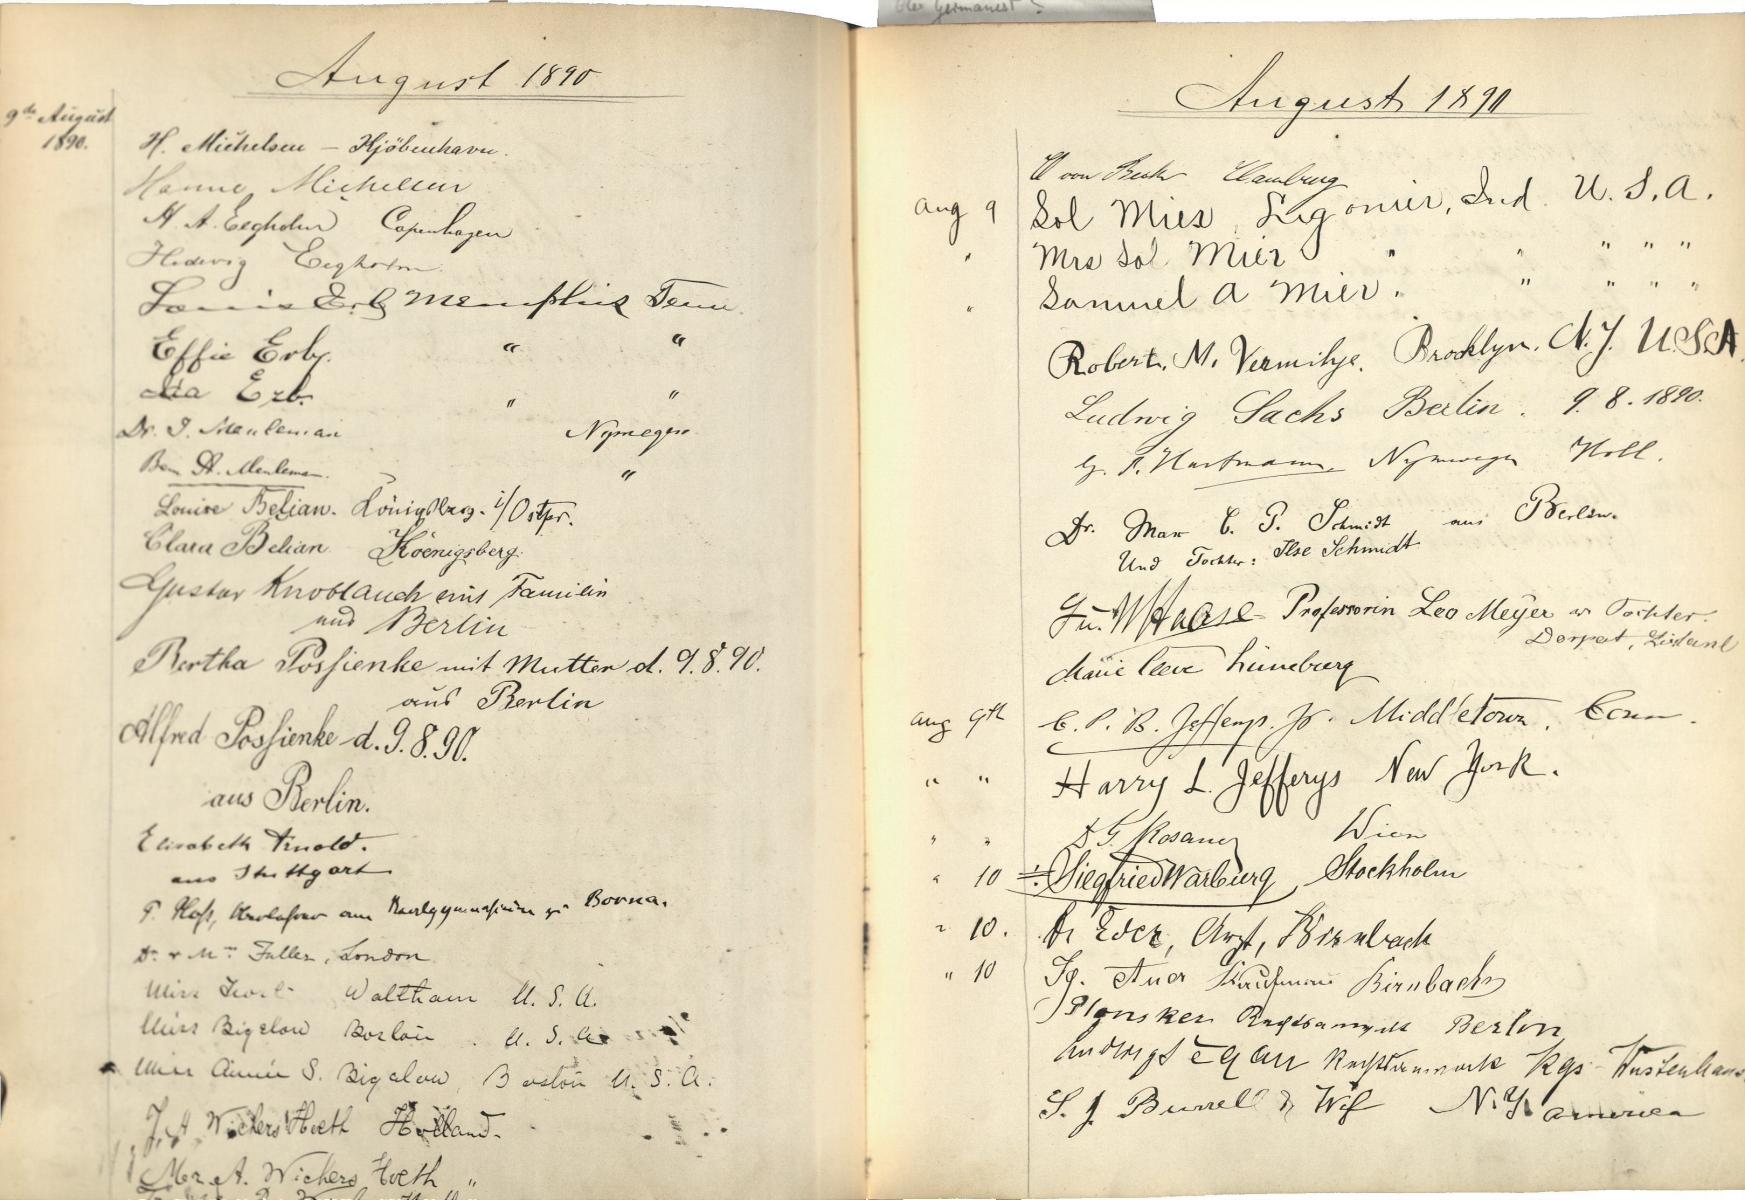 August 1890
9te August
1890.
H. Michelsen – Kjöbenhavn.
Hanne Michelsen
H. A. Eegholm Copenhagen
Hedevig Eegholm.
Louis Erb Memphis Tenn.
Effie Erb. " "
Ida Erb. " "
Dr. J. Meuleman Nymegen
Meuleman "
Louise Belian. Königsberg. i/Ostpr.
Clara Belian Koenigsberg.
Gustav Knoblauch Familie
und Berlin
Bertha Possienke mit Mutter d. 9.8.90.
aus Berlin
Alfred Possienke d. 9.8.90.
aus Berlin.
Elisabeth Arnold.
aus Stuttgart
am Realgymnasium zu Borna.
Dr. & Mrs Fuller, London
Miss Waltham U. S. A.
Miss Bigelow Boston. U. S. A.
Miss Annie S. Bigelow, Boston U. S. A.
J. A Wickers Hoeth Holland.
Mer. A. Wickers Hoeth "
August 1890
von Hamburg
Aug 9 Sol Mier, Ligonier, Ind. U. S. A.
" Mrs Sol Mier " " " " "
" Samuel A Mier. " " " "
Robert. M. Vermilye. Brooklyn. N.Y. U.S.A
Ludwig Sachs Berlin. 9. 8. 1890.
Hartmann Nymwegen Holl.
Dr. Max C. P. Schmidt aus Berlin.
Und Tochter: Ilse Schmidt
Haase Professorin Leo Meyer u Tochter.
Dorpat, Livland
Marie Lüneburg
Aug 9th C. P. B. Jefferys. Jr. Middletown. Conn.
" " Harry L. Jefferys New York.
" " Dr G. Rosaner Wien
" 10 Siegfried Warburg, Stockholm
" 10. Dr Eder, Arzt, Birnbach
" 10 Jg. Auer Kaufmann Birnbach
Plonsker Rechtsanwalt Berlin
Rechtsanwalt Kgs-Wusterhaus
S. J. Burrell & Wif N.Y. America